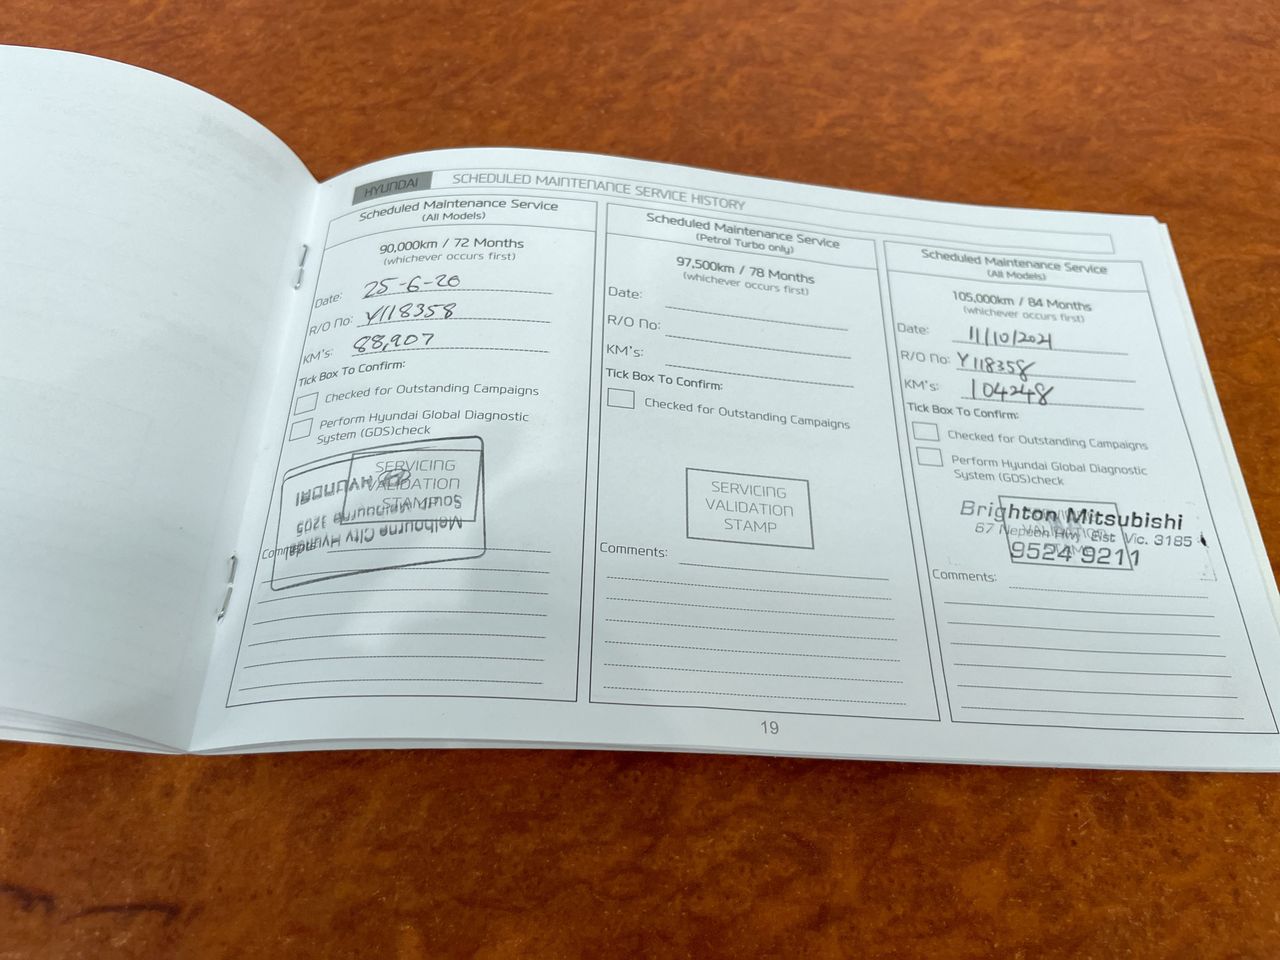 HYUNDAI SCHEDULED MAINTENANCE SERVICE HISTORY
Scheduled Maintenance Service
(All Models)
90,000km / 72 Months
(whichever occurs first)
Date: 25-6-20
R/O No: Y118358
KM's: 88,907
Tick Box To Confirm:
Checked for Outstanding Campaigns
Perform Hyundai Global Diagnostic
System (GDS)check
SERVICING
VALIDATION
STAMP
Melbourne City Hyundai
South Melbourne 3205
HYUNDAI
Comments:
Scheduled Maintenance Service
(Petrol Turbo only)
97,500km / 78 Months
(whichever occurs first)
Date:
R/O No:
KM's:
Tick Box To Confirm:
Checked for Outstanding Campaigns
SERVICING
VALIDATION
STAMP
Comments:
Scheduled Maintenance Service
(All Models)
105,000km / 84 Months
(whichever occurs first)
Date: 11/10/2021
R/O No: Y118358
KM's: 104248
Tick Box To Confirm:
Checked for Outstanding Campaigns
Perform Hyundai Global Diagnostic
System (GDS)check
Brighton Mitsubishi
67 Nepean Hwy East Vic. 3185
9524 9211
VALIDATION
STAMP
Comments:
19